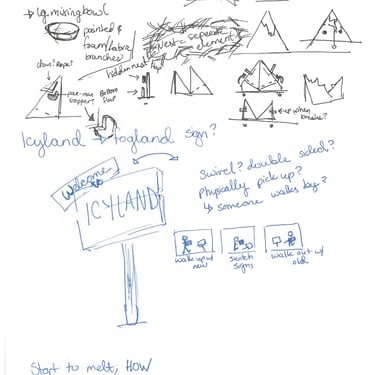 → lg. mixing bowl
painted &
foam/fabric
branches
hidden nest
Nest = separate
element
chain? Rope?
pac-man
stopper?
Bottom
flap
when
breaks?
Icyland → Fogland sign?
Welcome
to
ICYLAND
Swirl? double sided?
Physically pick up?
↳ someone walks by?
walk up w/
new
Switch
Signs
walk out w/
old
Start to melt; HOW